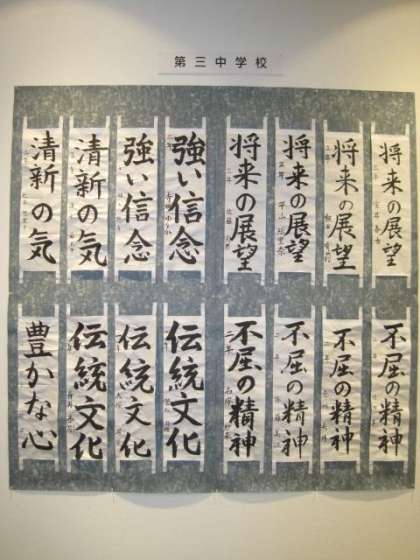 第三中学校
将来の展望
将来の展望
将来の展望
将来の展望
強い信念
強い信念
清新の気
清新の気
不屈の精神
不屈の精神
不屈の精神
不屈の精神
伝統文化
伝統文化
伝統文化
豊かな心